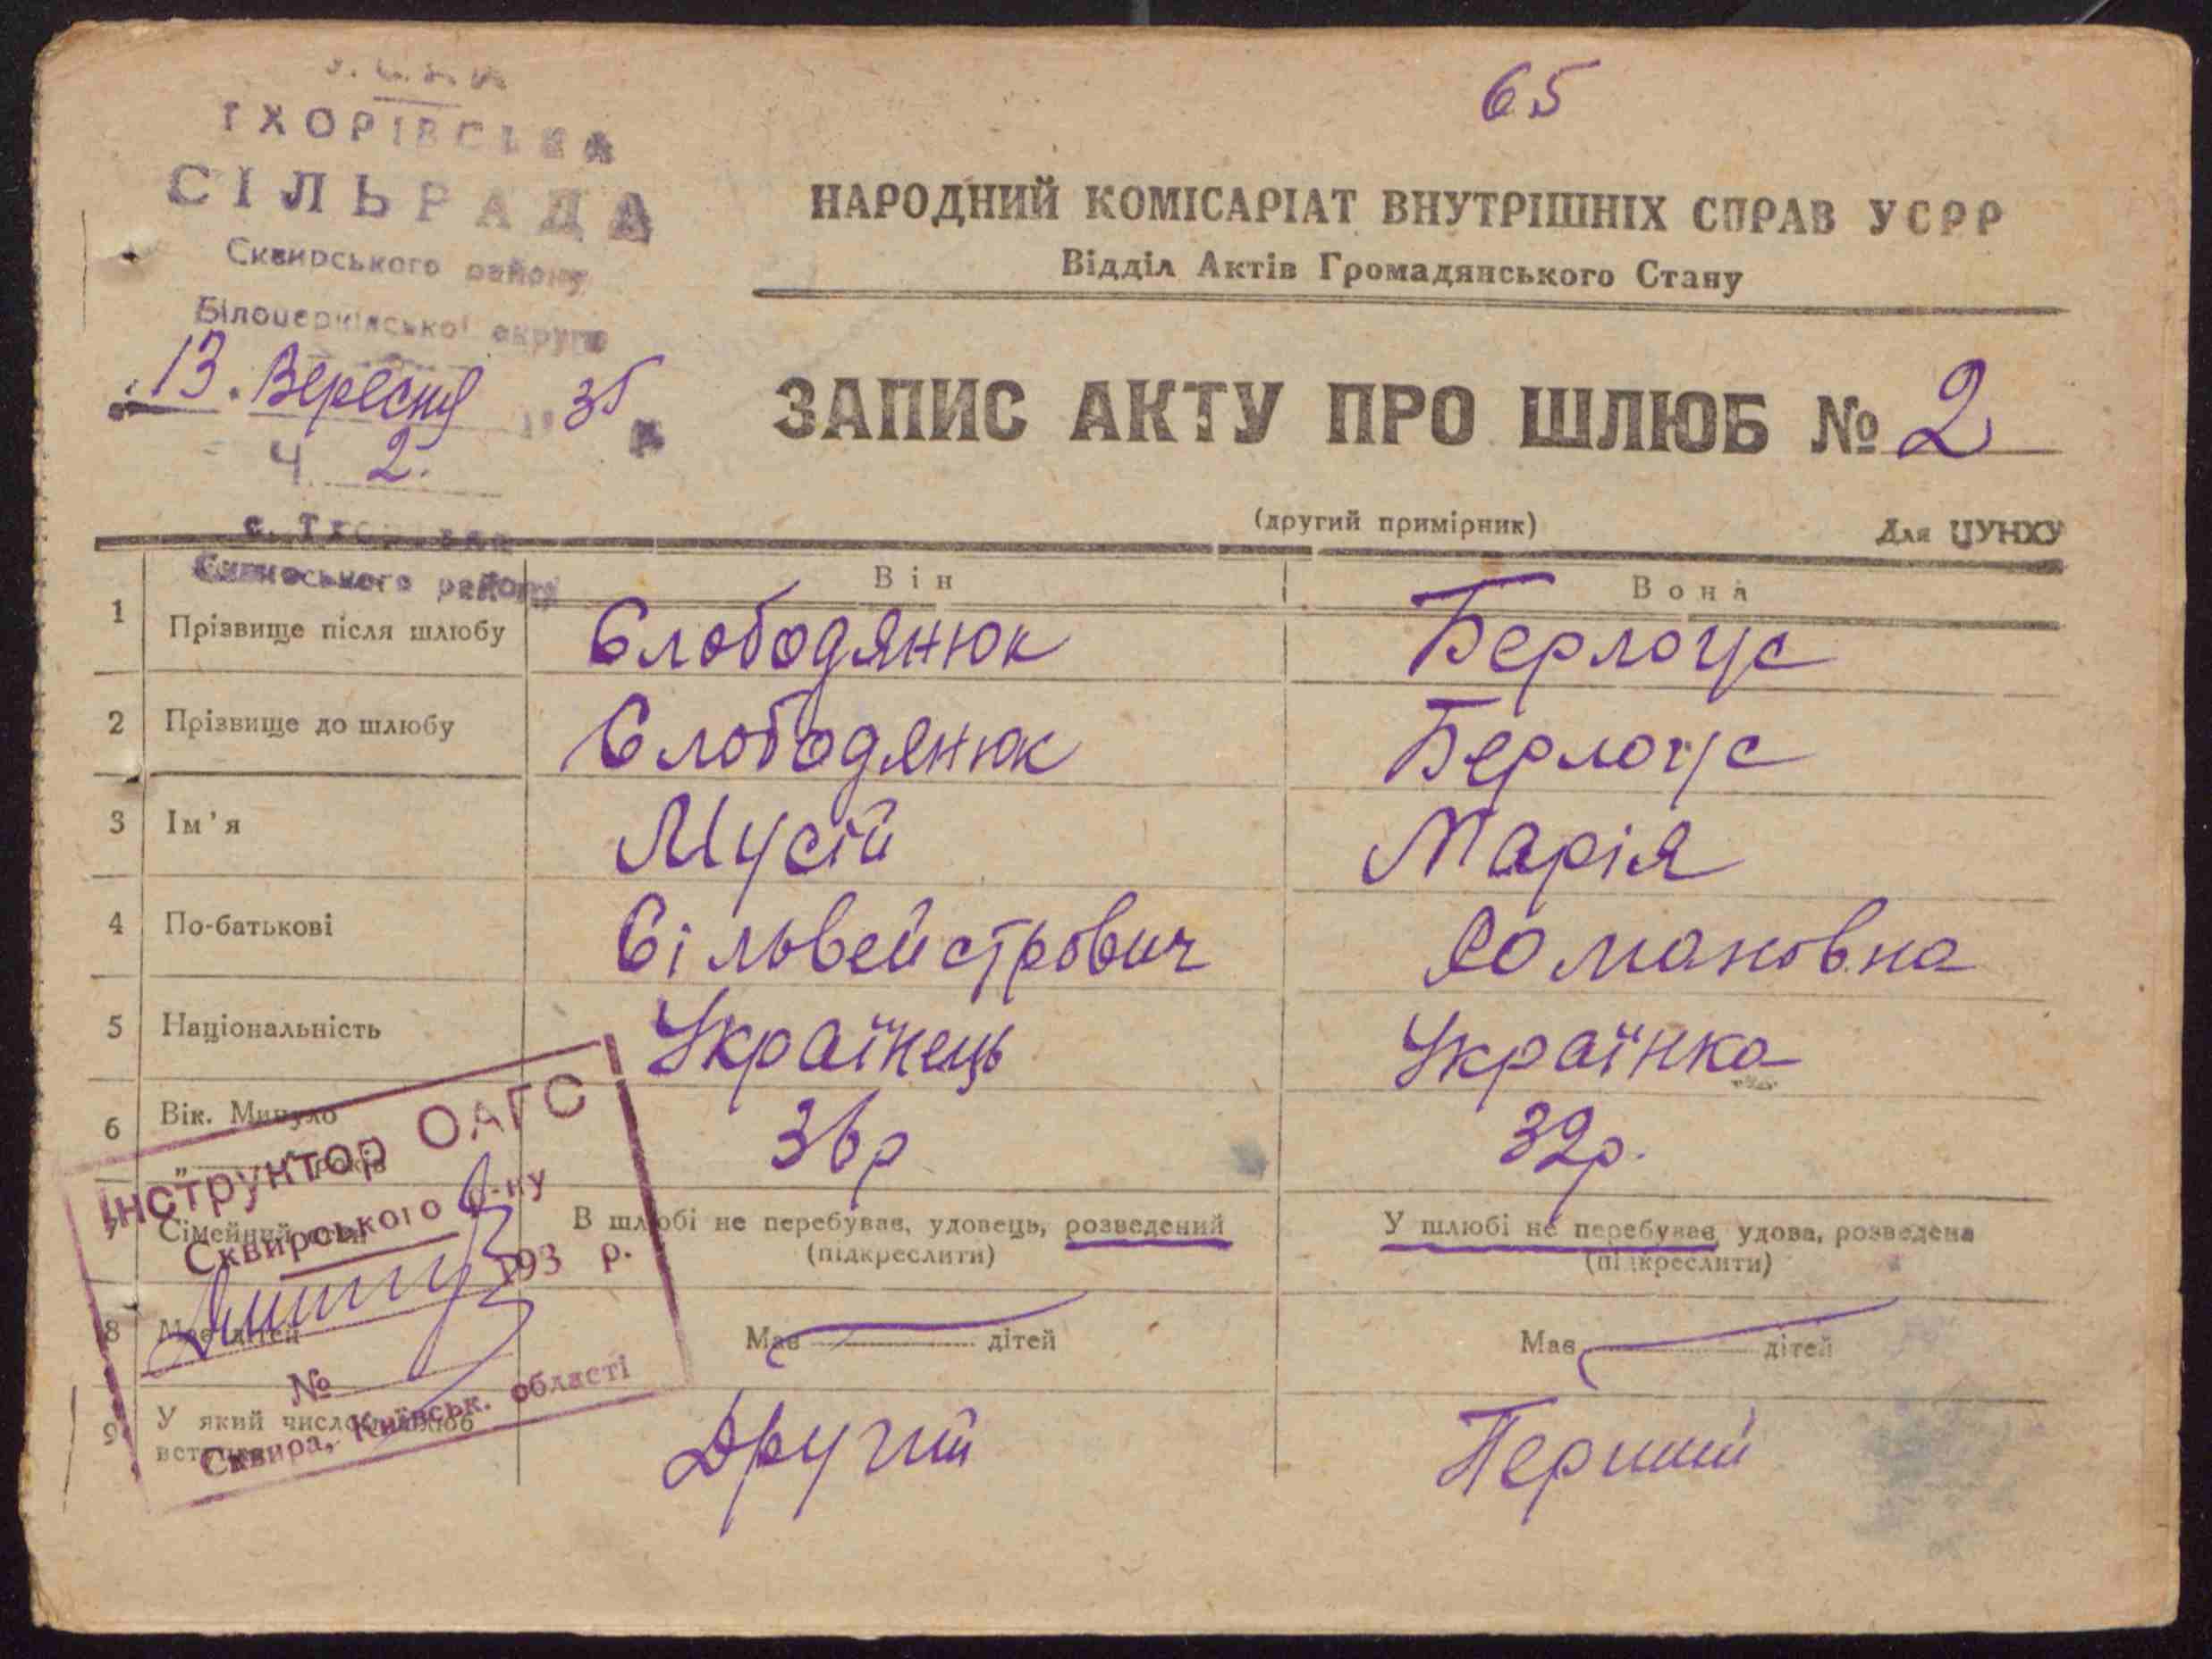 У.С.Р.Р.
ТХОРІВСЬКА
СІЛЬРАДА
Сквирського району
Білоцерківської округи
13. Вересня 1935 р.
Ч. 2.
с. Тхорівка
Сквирського району
65
НАРОДНИЙ КОМІСАРІАТ ВНУТРІШНІХ СПРАВ УСРР
Відділ Актів Громадянського Стану
ЗАПИС АКТУ ПРО ШЛЮБ № 2
(другий примірник)
Для ЦУНХУ
Він Вона
1 Прізвище після шлюбу Слободянюк Берлоус
2 Прізвище до шлюбу Слободянюк Берлоус
3 Ім'я Мусій Марія
4 По-батькові Сільвейстрович Романовна
5 Національність Українець Українка
6 Вік. Минуло 36р 32р.
років
7 Сімейний стан В шлюбі не перебував, удовець, розведений У шлюбі не перебував, удова, розведена
(підкреслити) (підкреслити)
8 Має дітей Має дітей Має дітей
9 У який числом шлюб Другий Перший
вступає
Інструктор ОАГС
Сквирського р-ну
193 р.
№
Сквира, Київськ. області